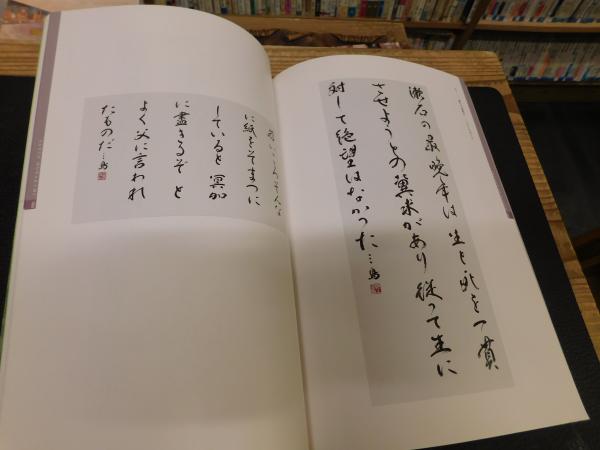 漱石の最晩年は生と死を一貫
させようとの冀求があり従って生に
対して絶望はなかった…
に紙をそまつに
していると冥加
に盡きるぞと
よく父に言われ
たものだ…